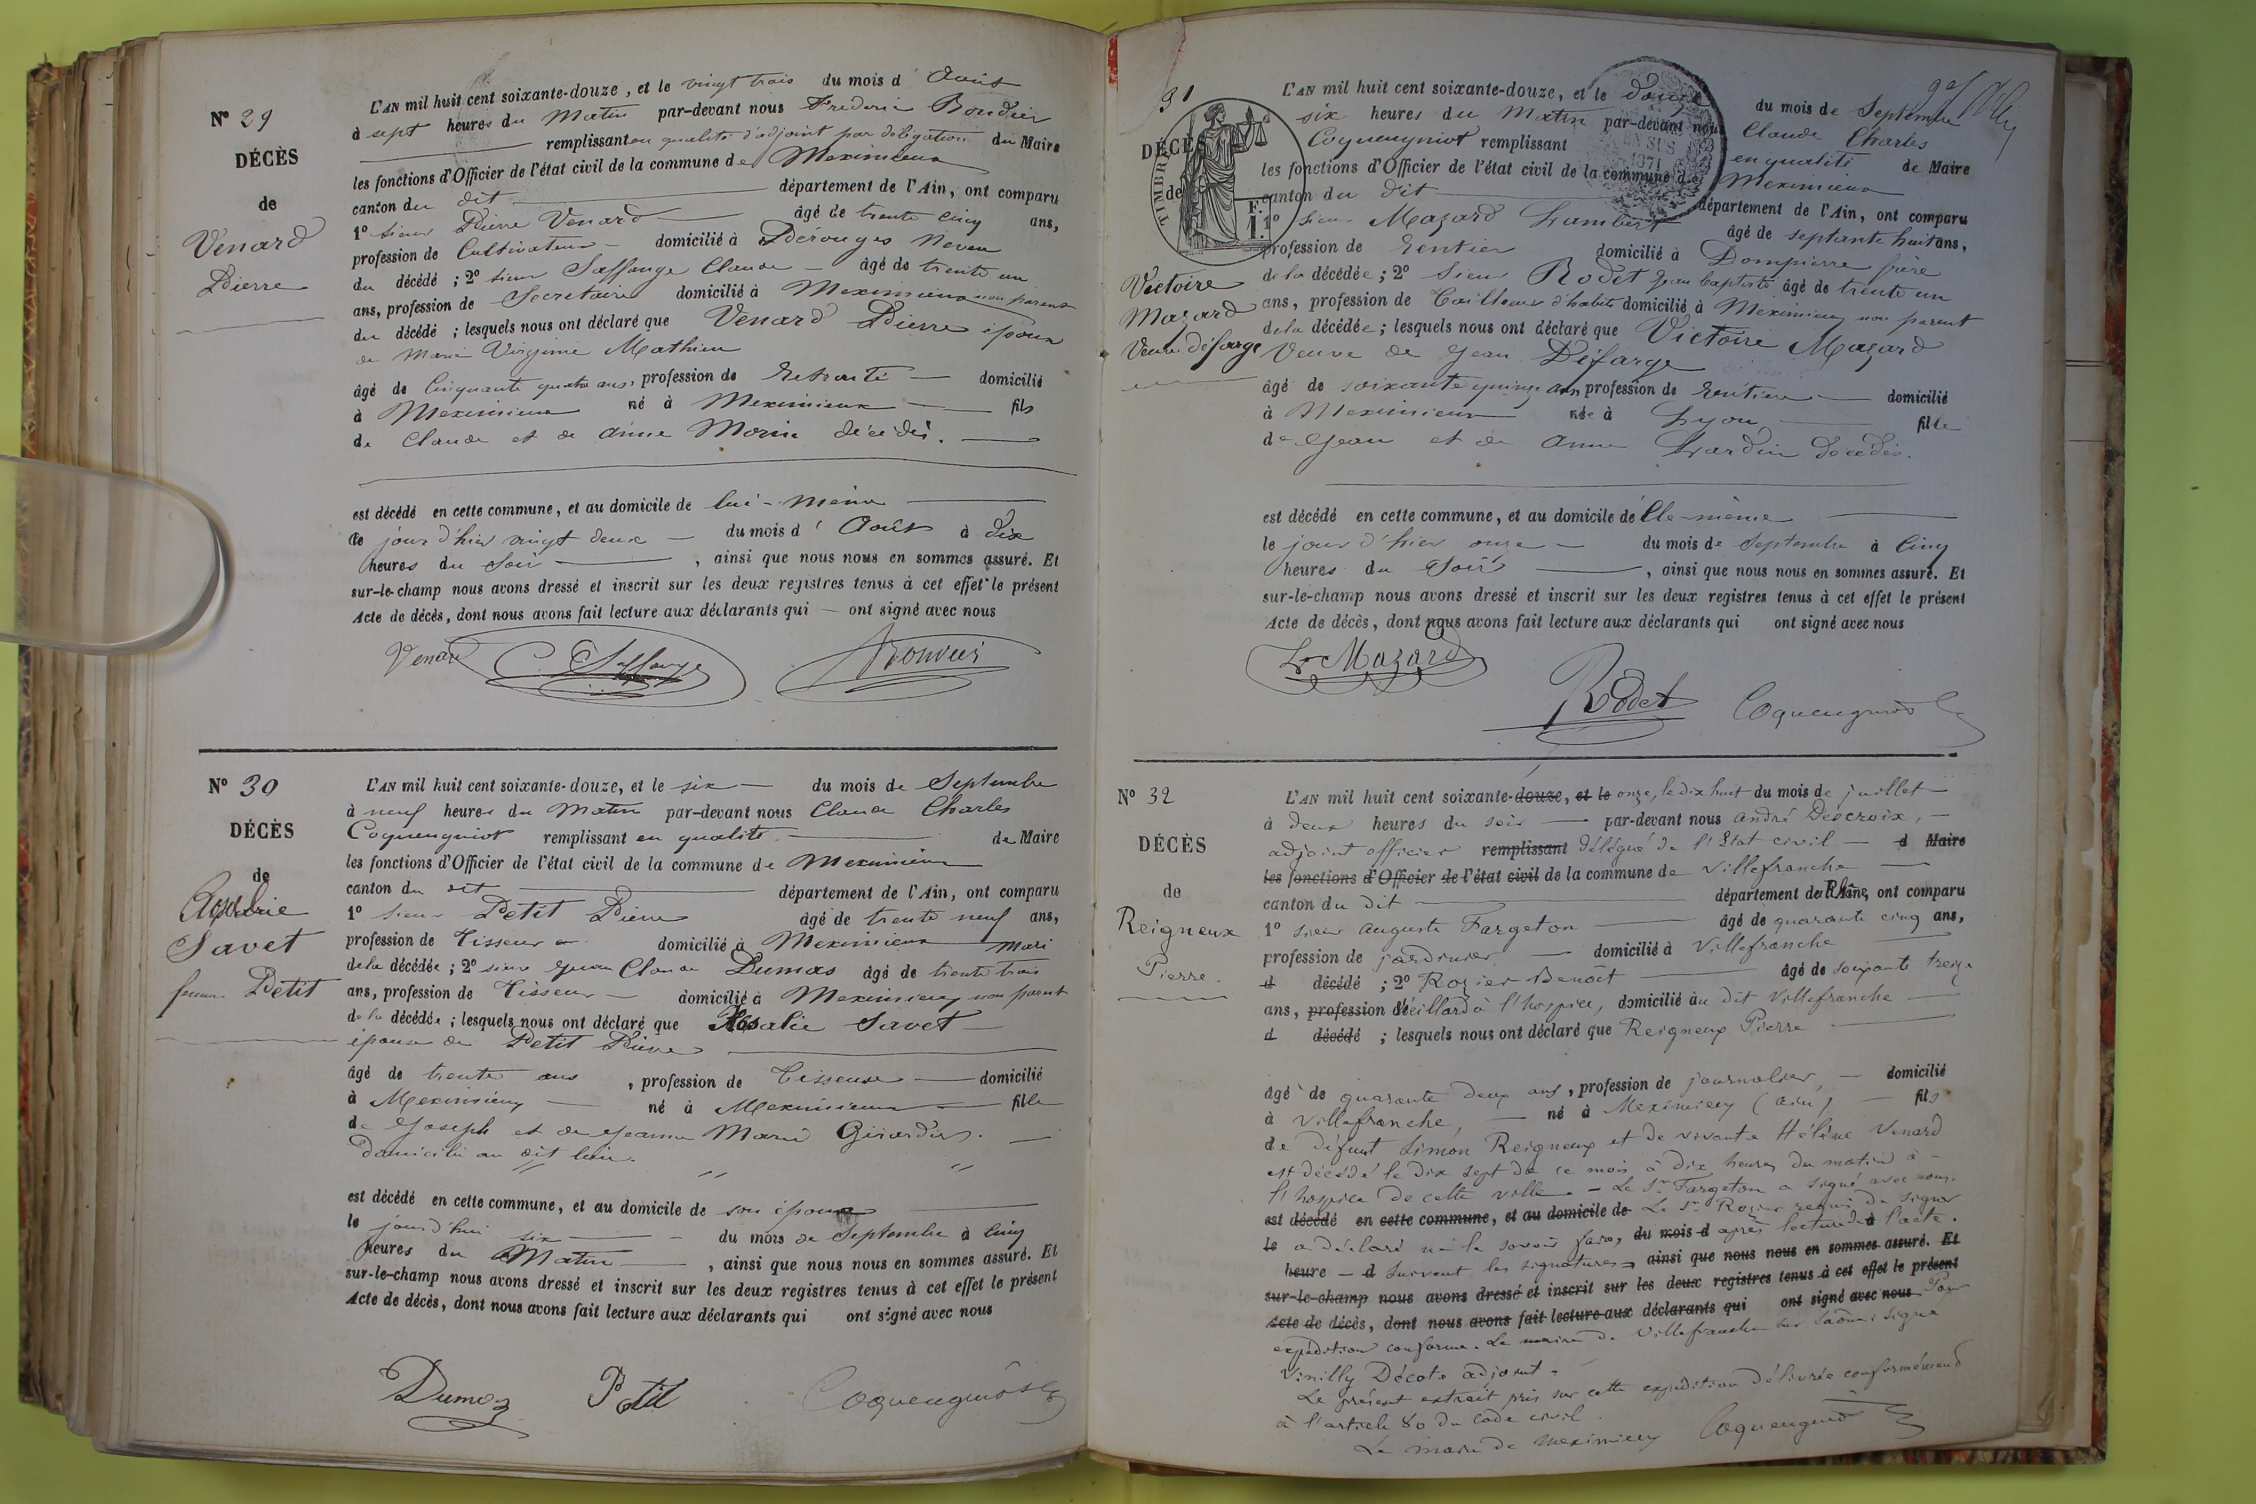 Nº 29
DÉCÈS
de
Vénard
Pierre
L'AN mil huit cent soixante-douze, et le vingt trois du mois d'Août
à sept heures du Matin par-devant nous Frédéric Bouvier
remplissant en qualité d'adjoint par délégation du Maire
les fonctions d'Officier de l'état civil de la commune de Meximieux
canton du dit département de l'Ain, ont comparu
1º sieur Pierre Vénard âgé de trente cinq ans,
profession de Cultivateur domicilié à Pérouges Neveu
du décédé ; 2º sieur Saffange Claude âgé de trente un
ans, profession de Secrétaire domicilié à Meximieux non parent
du décédé ; lesquels nous ont déclaré que Vénard Pierre époux
de Marie Virginie Mathieu
âgé de Cinquante quatre ans, profession de Retraité domicilié
à Meximieux né à Meximieux fils
de Claude et de Anne Morin décédés.
est décédé en cette commune, et au domicile de lui-même
le jour d'hier vingt deux du mois d'Août à dix
heures du Soir , ainsi que nous nous en sommes assuré. Et
sur-le-champ nous avons dressé et inscrit sur les deux registres tenus à cet effet le présent
Acte de décès, dont nous avons fait lecture aux déclarants qui ont signé avec nous
Venard C. Saffange Bouvier
Nº 30
DÉCÈS
de
Rosalie
Savet
femme Petit
L'AN mil huit cent soixante-douze, et le six du mois de Septembre
à neuf heures du Matin par-devant nous Claude Charles
Coqueugniot remplissant en qualité de Maire
les fonctions d'Officier de l'état civil de la commune de Meximieux
canton du dit département de l'Ain, ont comparu
1º sieur Petit Pierre âgé de trente neuf ans,
profession de Tisseur domicilié à Meximieux mari
de la décédée ; 2º sieur Jean Claude Dumas âgé de trente trois
ans, profession de Tisseur domicilié à Meximieux non parent
de la décédée ; lesquels nous ont déclaré que Rosalie Savet
épouse de Petit Pierre
âgé de trente ans , profession de Tisseuse domicilié
à Meximieux né à Meximieux fille
de Joseph et de Jeanne Marie Girardin.
domicilié au dit lieu.
est décédé en cette commune, et au domicile de son époux
le jourd'hui six du mois de Septembre à Cinq
heures du Matin , ainsi que nous nous en sommes assuré. Et
sur-le-champ nous avons dressé et inscrit sur les deux registres tenus à cet effet le présent
Acte de décès, dont nous avons fait lecture aux déclarants qui ont signé avec nous
Dumas Petit Coqueugniot
31
DÉCÈS
de
TIMBRE
F.
1.
Victoire
Mazard
Veuve Défarge
L'AN mil huit cent soixante-douze, et le douze du mois de Septembre
six heures du Matin par-devant nous Claude Charles
Coqueugniot remplissant en qualité de Maire
les fonctions d'Officier de l'état civil de la commune de Meximieux
canton du dit département de l'Ain, ont comparu
1º sieur Mazard Lambert âgé de septante huit ans,
profession de Rentier domicilié à Dompierre frère
de la décédée ; 2º Sieur Rodet Jean Baptiste âgé de trente un
ans, profession de Tailleur d'habits domicilié à Meximieux non parent
de la décédée ; lesquels nous ont déclaré que Victoire Mazard
Veuve de Jean Défarge
âgé de soixante quinze ans profession de Rentière domicilié
à Meximieux née à Lyon fille
de Jean et de Anne Lardin décédés.
est décédé en cette commune, et au domicile de Elle-même
le jour d'hier onze du mois de Septembre à Cinq
heures du Soir , ainsi que nous nous en sommes assuré. Et
sur-le-champ nous avons dressé et inscrit sur les deux registres tenus à cet effet le présent
Acte de décès, dont nous avons fait lecture aux déclarants qui ont signé avec nous
Lt Mazard
Rodet Coqueugniot
Nº 32
DÉCÈS
de
Reigneux
Pierre
L'AN mil huit cent soixante-douze, et le onze, le dix huit du mois de juillet
à deux heures du soir par-devant nous André Descroix,
adjoint officier remplissant délégué de l'Etat civil d Maire
les fonctions d'Officier de l'état civil de la commune de Villefranche
canton du dit département du Rhône, ont comparu
1º sieur Auguste Fargeton âgé de quarante cinq ans,
profession de jardinier domicilié à Villefranche
d décédé ; 2º Rozier Benoît âgé de soixante treize
ans, profession Vieillard à l'hospice, domicilié au dit Villefranche
d décédé ; lesquels nous ont déclaré que Reigneux Pierre
âgé de quarante deux ans, profession de journalier, domicilié
à Villefranche, né à Meximieux (ain) fils
de défunt Simon Reigneux et de vivante Hélène Venard
est décédé le dix sept de ce mois à dix heures du matin à
l'hospice de cette ville. - Le Sr Fargeton a signé avec nous.
est décédé en cette commune, et au domicile de Le Sr Rozier requis de signer
le a déclaré ne le savoir faire, du mois d après lecture de l'acte.
heure d Suivent les signatures ainsi que nous nous en sommes assuré. Et
sur-le-champ nous avons dressé et inscrit sur les deux registres tenus à cet effet le présent
Acte de décès, dont nous avons fait lecture aux déclarants qui ont signé avec nous Pour
expédition conforme. Le maire de Villefranche sur Saône: signé
Vinilly Décote adjoint.
Le présent extrait pris sur cette expédition délivrée conformément
à l'article 80 du Code civil.
Le maire de Meximieux Coqueugniot